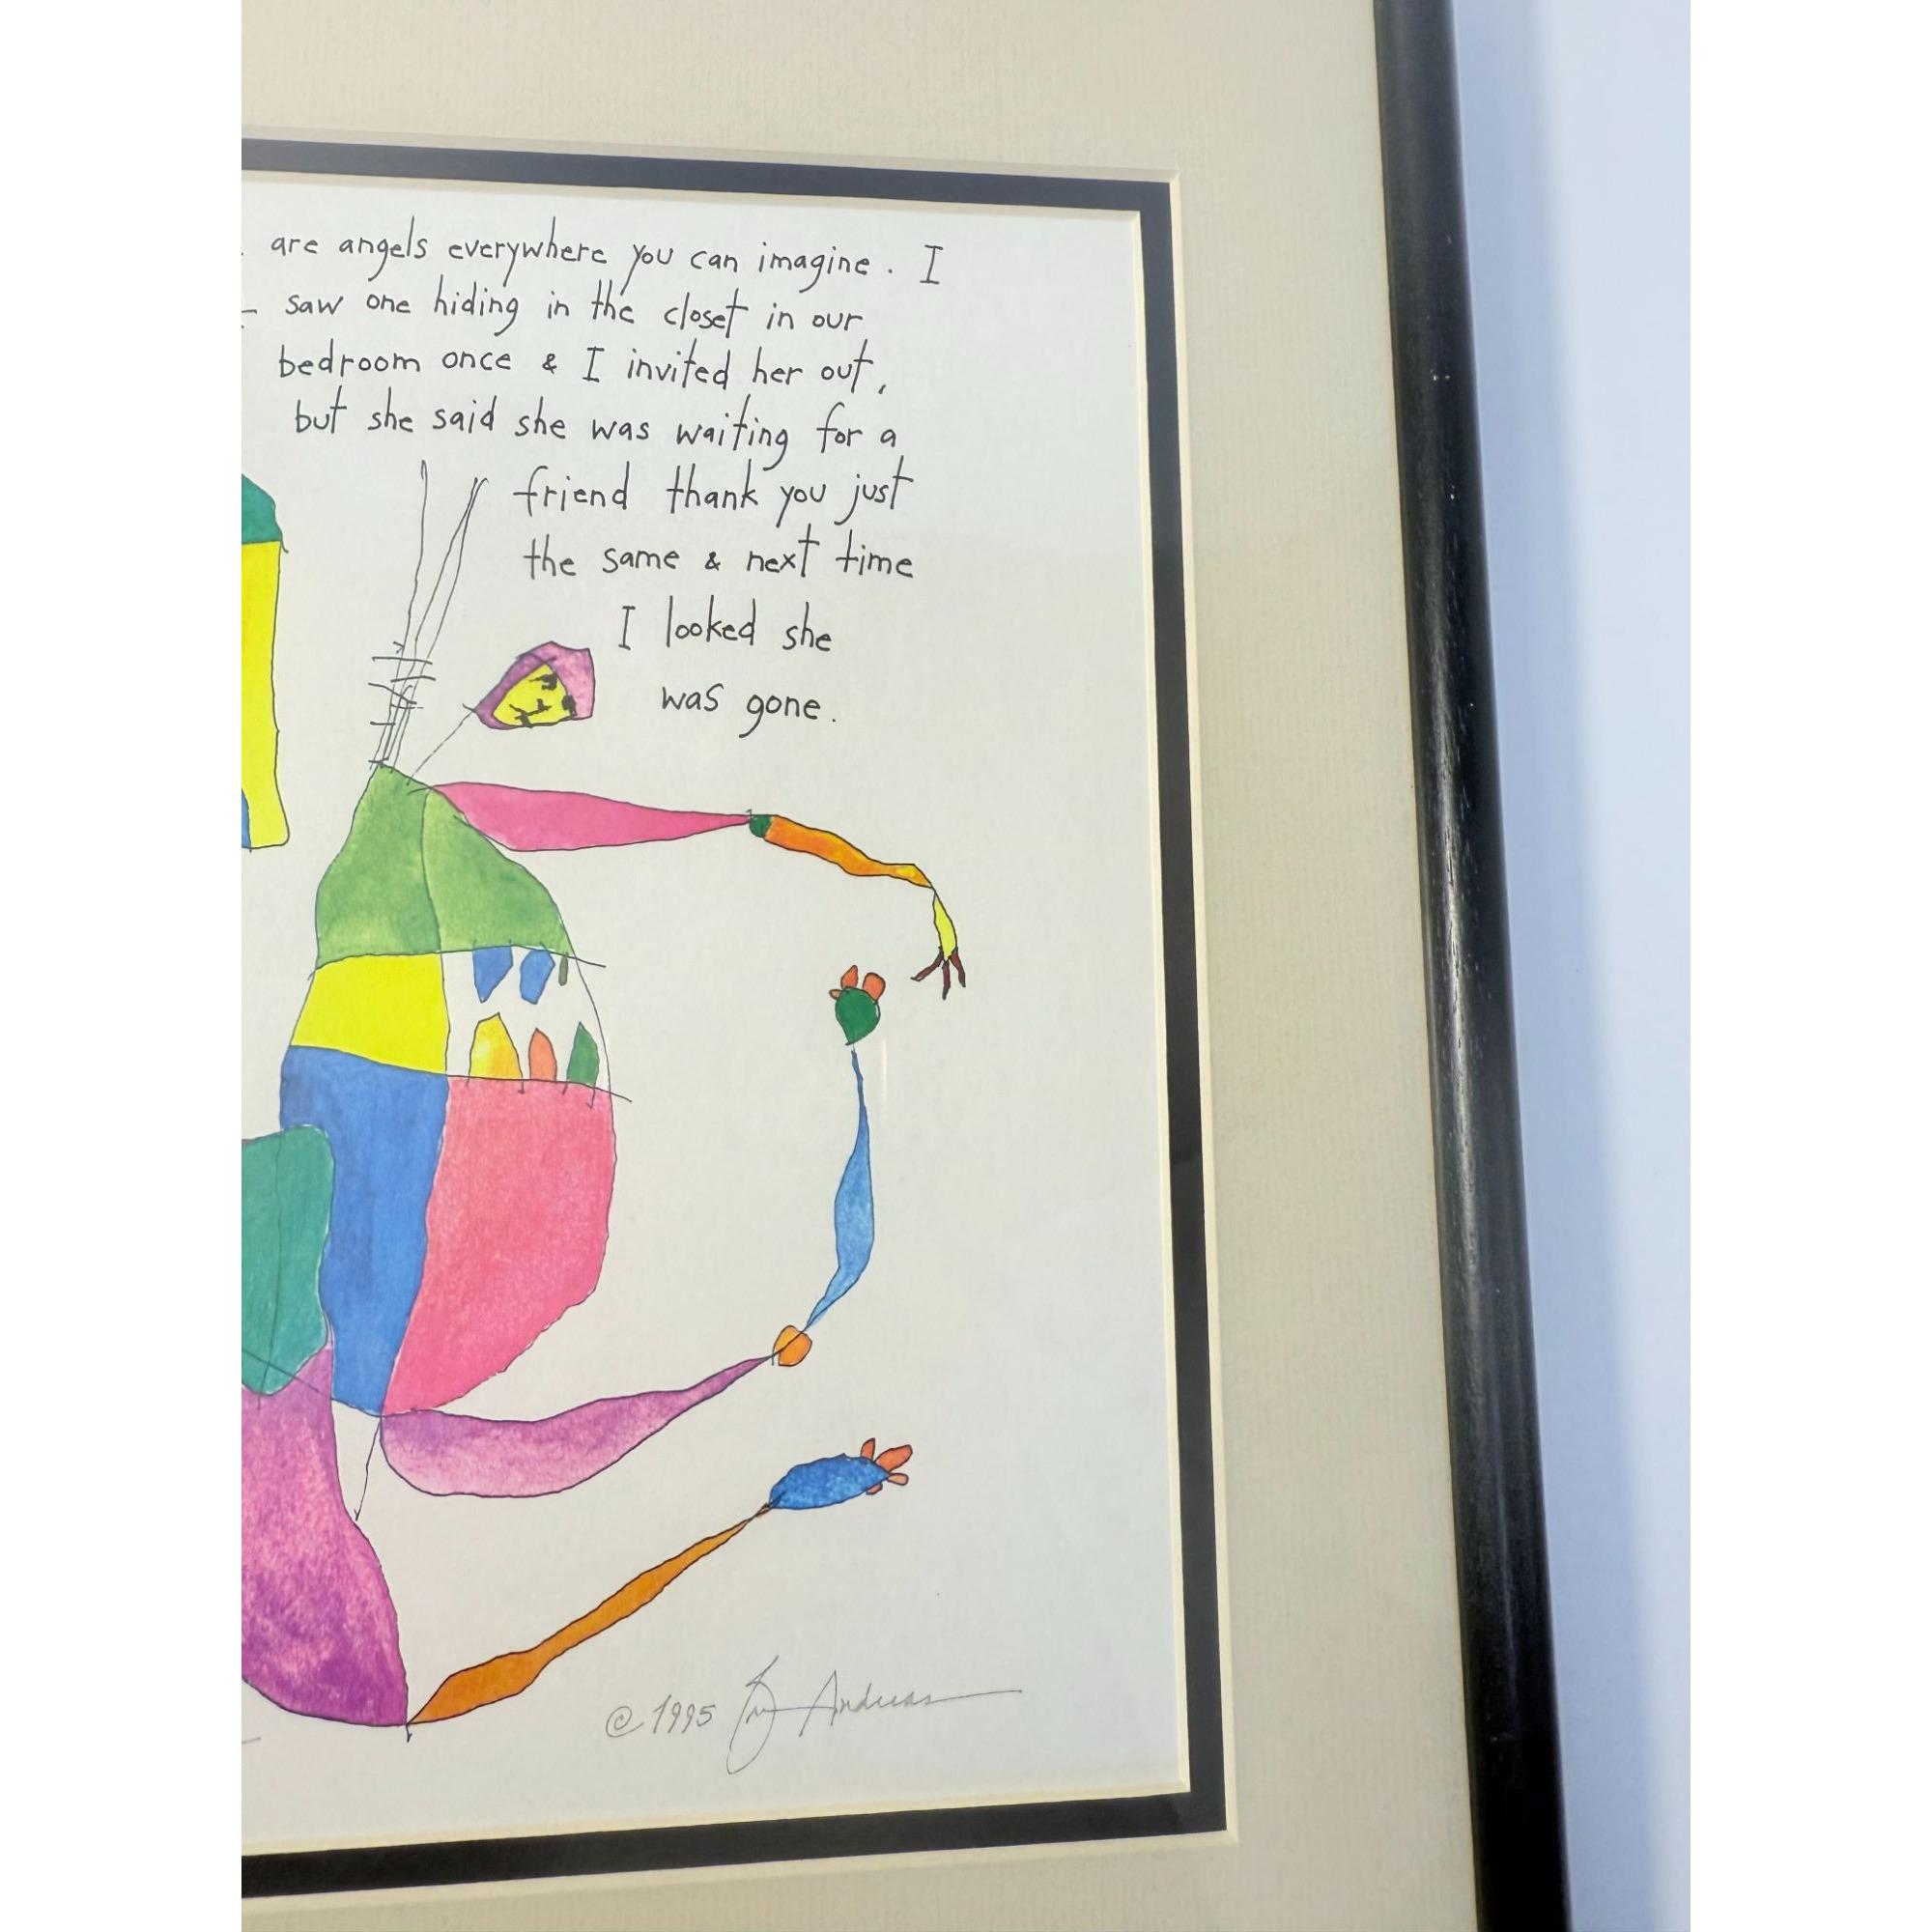 are angels everywhere you can imagine. I
saw one hiding in the closet in our
bedroom once & I invited her out,
but she said she was waiting for a
friend thank you just
the same & next time
I looked she
was gone.
© 1995 Andreas